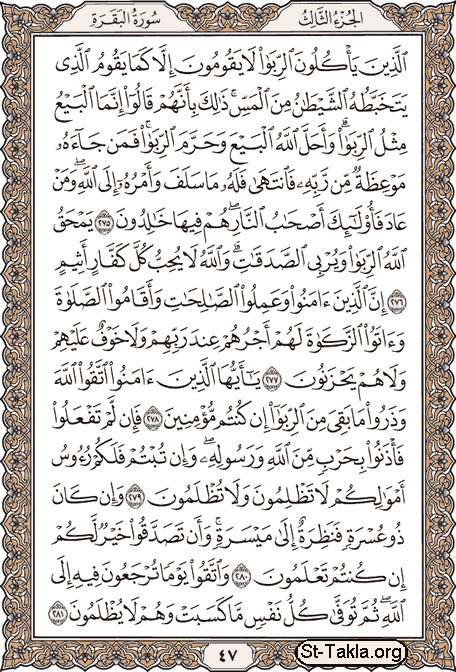 الجزء الثالث سورة البقرة
الذين يأكلون الربوا لا يقومون إلا كما يقوم الذى
يتخبطه الشيطان من المس ذلك بأنهم قالوا إنما البيع
مثل الربوا وأحل الله البيع وحرم الربوا فمن جاءه
موعظة من ربه فانتهى فله ما سلف وأمره إلى الله ومن
عاد فأولئك أصحاب النار هم فيها خالدون ٢٧٥ يمحق
الله الربوا ويربى الصدقات والله لا يحب كل كفار أثيم
٢٧٦ إن الذين ءامنوا وعملوا الصالحات وأقاموا الصلوة
وءاتوا الزكوة لهم أجرهم عند ربهم ولا خوف عليهم
ولا هم يحزنون ٢٧٧ يأيها الذين ءامنوا اتقوا الله
وذروا ما بقى من الربوا إن كنتم مؤمنين ٢٧٨ فإن لم تفعلوا
فأذنوا بحرب من الله ورسوله وإن تبتم فلكم رءوس
أموالكم لا تظلمون ولا تظلمون ٢٧٩ وإن كان
ذو عسرة فنظرة إلى ميسرة وأن تصدقوا خير لكم
إن كنتم تعلمون ٢٨٠ واتقوا يوما ترجعون فيه إلى
الله ثم توفى كل نفس ما كسبت وهم لا يظلمون ٢٨١
٤٧
St-Takla.org